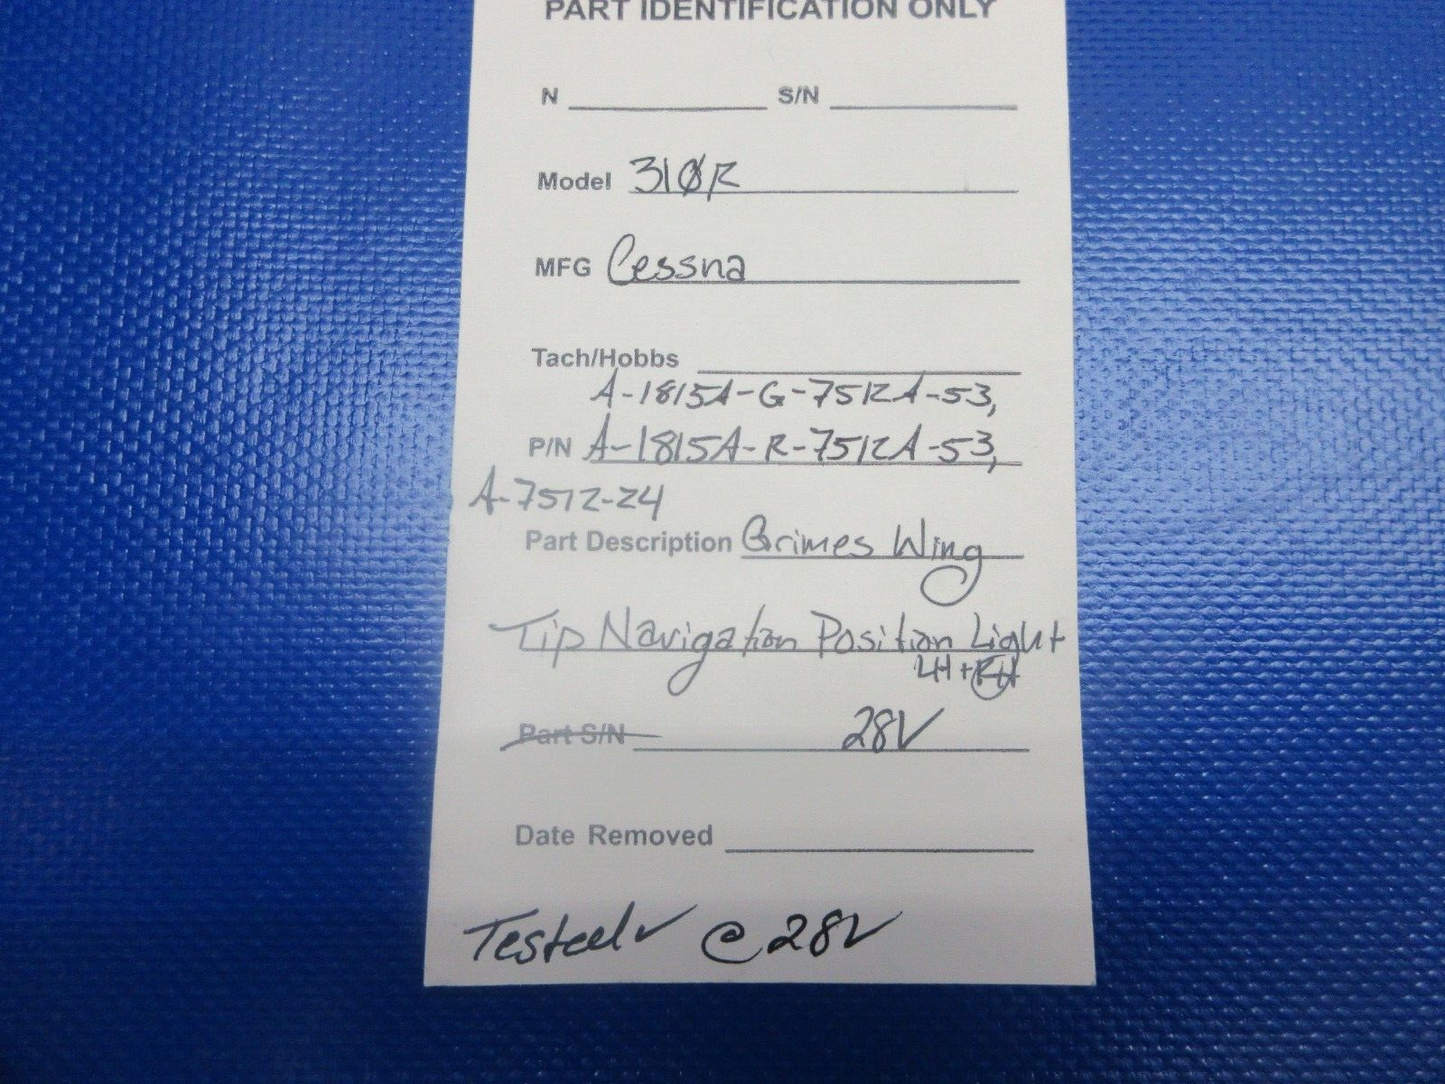 PART IDENTIFICATION ONLY
N S/N
Model 310R
MFG Cessna
Tach/Hobbs
A-1815A-G-7512A-53,
P/N A-1815A-R-7512A-53,
A-7512-24
Part Description Grimes Wing
Tip Navigation Position Light
LH + RH
Part S/N 28V
Date Removed
Tested ✓ @ 28V